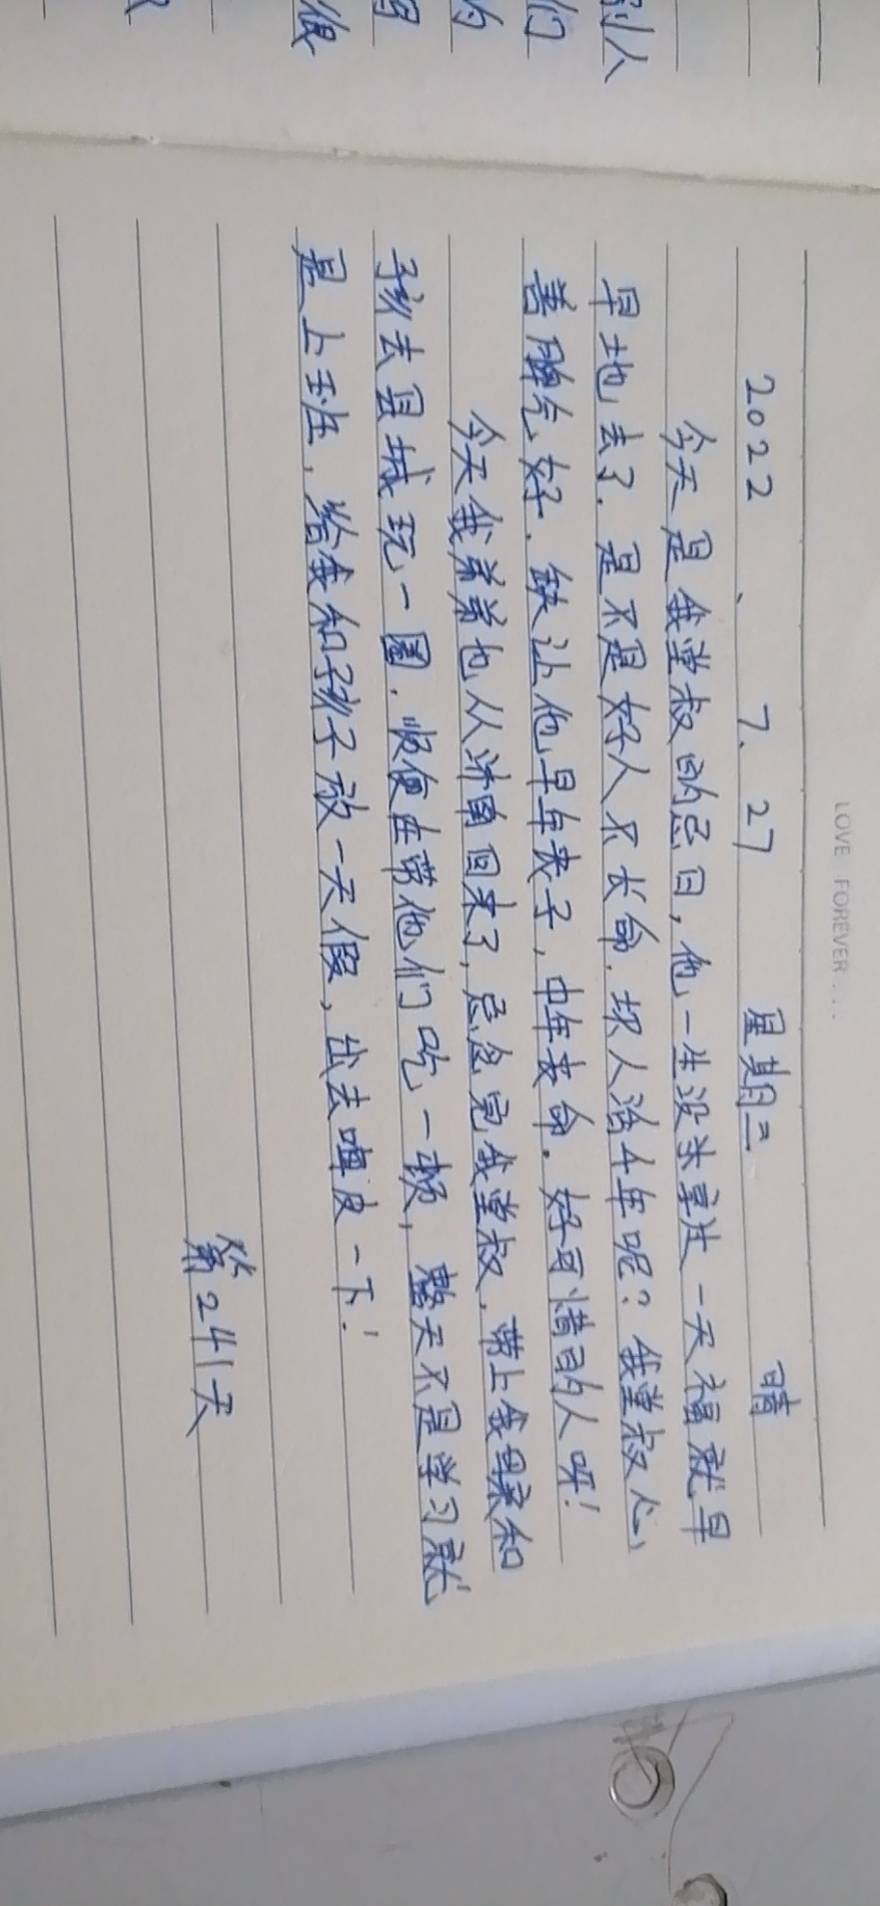 LOVE FOREVER...
2022、7.27 星期三 晴
今天是我堂叔的忌日,他一生没来享过一天福就早
早地去了.是不是好人不长命.坏人活千年呢?我堂叔心
善脾气好.缺让他早年丧子,中年丧命。好可惜的人呀!
今天我弟弟也从济南回来了,忌念完我堂叔.带上我母亲和
孩去县城玩一圈.顺便在带他们吃一顿,整天不是学习就
是上班,给我和孩子放一天假,出去嗨皮一下!
第241天
别人
们
的
很